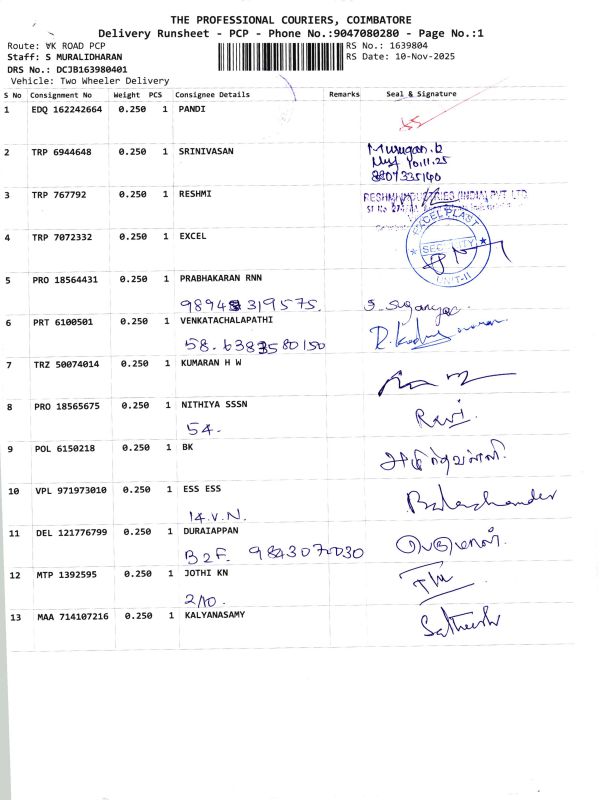 THE PROFESSIONAL COURIERS, COIMBATORE
Delivery Runsheet - PCP - Phone No.:9047080280 - Page No.:1
Route: VK ROAD PCP
RS No.: 1639804
Staff: S MURALIDHARAN
RS Date: 10-Nov-2025
DRS No.: DCJB163980401
Vehicle: Two Wheeler Delivery
S No Consignment No Weight PCS Consignee Details Remarks Seal & Signature
1 EDQ 162242664 0.250 1 PANDI
2 TRP 6944648 0.250 1 SRINIVASAN
Murugan.b
10.11.25
8807335140
3 TRP 767792 0.250 1 RESHMI
RESHMI INDUSTRIES (INDIA) PVT. LTD
4 TRP 7072332 0.250 1 EXCEL
EXCEL PLAST
SECURITY
UNIT-II
5 PRO 18564431 0.250 1 PRABHAKARAN RNN
98945 319575. S. Suganya
6 PRT 6100501 0.250 1 VENKATACHALAPATHI
58. 6383580150
7 TRZ 50074014 0.250 1 KUMARAN H W
8 PRO 18565675 0.250 1 NITHIYA SSSN
54. Ravi.
9 POL 6150218 0.250 1 BK
10 VPL 971973010 0.250 1 ESS ESS
14.V.N. Balachander
11 DEL 121776799 0.250 1 DURAIAPPAN
B2F. 9843070030
12 MTP 1392595 0.250 1 JOTHI KN
2/10.
13 MAA 714107216 0.250 1 KALYANASAMY
Satheesh